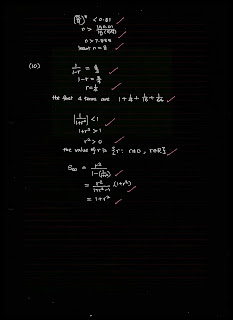 n > 7.888
least n = 8
(10)
1 - r = 3/4
r = 1/4
the first 4 terms are 1 + 1/4 + 1/16 + 1/64
|1/(1+r²)| < 1
1 + r² > 1
r² > 0
the value of r is {r : r≠0, r∈R}
S∞ = r²/(1 - (1/(1+r²)))
= r²/(1+r²-1) (1+r²)
= 1 + r²